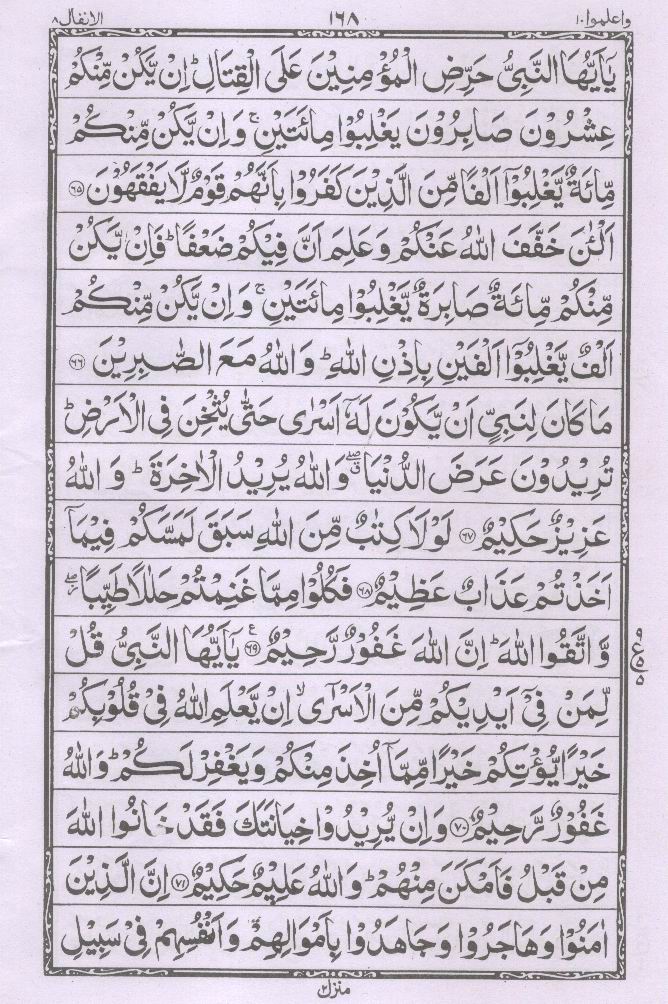 واعلموا ١٠ ١٦٨ الانفال ٨
يٰۤاَيُّهَا النَّبِىُّ حَرِّضِ الْمُؤْمِنِيْنَ عَلَى الْقِتَالِؕ اِنْ يَّكُنْ مِّنْكُمْ
عِشْرُوْنَ صَابِرُوْنَ يَغْلِبُوْا مِائَتَيْنِۚ وَاِنْ يَّكُنْ مِّنْكُمْ
مِّائَةٌ يَّغْلِبُوْۤا اَلْفًا مِّنَ الَّذِيْنَ كَفَرُوْا بِاَنَّهُمْ قَوْمٌ لَّا يَفْقَهُوْنَ ۝٦٥
اَلْـٰٔنَ خَفَّفَ اللّٰهُ عَنْكُمْ وَعَلِمَ اَنَّ فِيْكُمْ ضَعْفًاؕ فَاِنْ يَّكُنْ
مِّنْكُمْ مِّائَةٌ صَابِرَةٌ يَّغْلِبُوْا مِائَتَيْنِۚ وَاِنْ يَّكُنْ مِّنْكُمْ
اَلْفٌ يَّغْلِبُوْۤا اَلْفَيْنِ بِاِذْنِ اللّٰهِؕ وَاللّٰهُ مَعَ الصّٰبِرِيْنَ ۝٦٦
مَا كَانَ لِنَبِىٍّ اَنْ يَّكُوْنَ لَهٗۤ اَسْرٰى حَتّٰى يُثْخِنَ فِى الْاَرْضِؕ
تُرِيْدُوْنَ عَرَضَ الدُّنْيَاۖۗ وَاللّٰهُ يُرِيْدُ الْاٰخِرَةَؕ وَاللّٰهُ
عَزِيْزٌ حَكِيْمٌ ۝٦٧ لَوْلَا كِتٰبٌ مِّنَ اللّٰهِ سَبَقَ لَمَسَّكُمْ فِيْمَاۤ
اَخَذْتُمْ عَذَابٌ عَظِيْمٌ ۝٦٨ فَكُلُوْا مِمَّا غَنِمْتُمْ حَلٰلًا طَيِّبًاۖ
وَّاتَّقُوا اللّٰهَؕ اِنَّ اللّٰهَ غَفُوْرٌ رَّحِيْمٌ ۝٦٩ ع يٰۤاَيُّهَا النَّبِىُّ قُلْ
لِّمَنْ فِىْۤ اَيْدِيْكُمْ مِّنَ الْاَسْرٰۤىۙ اِنْ يَّعْلَمِ اللّٰهُ فِىْ قُلُوْبِكُمْ
خَيْرًا يُّؤْتِكُمْ خَيْرًا مِّمَّاۤ اُخِذَ مِنْكُمْ وَيَغْفِرْ لَكُمْؕ وَاللّٰهُ
غَفُوْرٌ رَّحِيْمٌ ۝٧٠ وَاِنْ يُّرِيْدُوْا خِيَانَتَكَ فَقَدْ خَانُوا اللّٰهَ
مِنْ قَبْلُ فَاَمْكَنَ مِنْهُمْؕ وَاللّٰهُ عَلِيْمٌ حَكِيْمٌ ۝٧١ اِنَّ الَّذِيْنَ
اٰمَنُوْا وَهَاجَرُوْا وَجَاهَدُوْا بِاَمْوَالِهِمْ وَاَنْفُسِهِمْ فِىْ سَبِيْلِ
منزل ٢